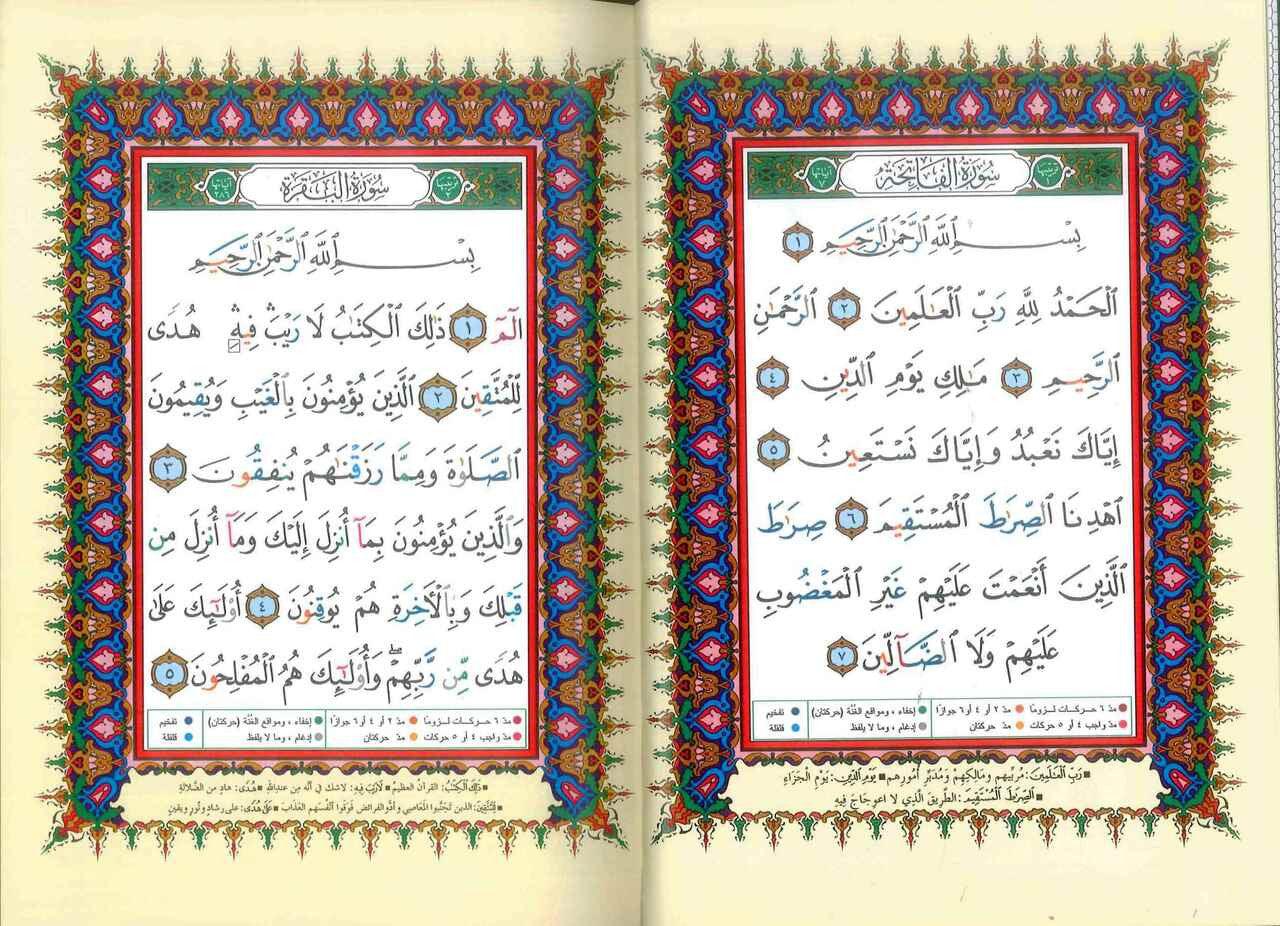 ترتيبها ١ سُورَةُ الْفَاتِحَةِ آياتها ٧
بِسْمِ ٱللَّهِ ٱلرَّحْمَٰنِ ٱلرَّحِيمِ ١
ٱلْحَمْدُ لِلَّهِ رَبِّ ٱلْعَٰلَمِينَ ٢ ٱلرَّحْمَٰنِ
ٱلرَّحِيمِ ٣ مَٰلِكِ يَوْمِ ٱلدِّينِ ٤
إِيَّاكَ نَعْبُدُ وَإِيَّاكَ نَسْتَعِينُ ٥
ٱهْدِنَا ٱلصِّرَٰطَ ٱلْمُسْتَقِيمَ ٦ صِرَٰطَ
ٱلَّذِينَ أَنْعَمْتَ عَلَيْهِمْ غَيْرِ ٱلْمَغْضُوبِ
عَلَيْهِمْ وَلَا ٱلضَّآلِّينَ ٧
مدّ ٦ حركات لزومًا مدّ ٢ أو ٤ أو ٦ جوازًا إخفاء، ومواقع الغُنَّة (حركتان) تفخيم
مدّ واجب ٤ أو ٥ حركات مدّ حركتان إدغام، وما لا يُلفظ قلقلة
رَبِّ الْعَٰلَمِينَ: مُرَبِّيهم ومَالِكِهِمْ وَمُدَبِّرِ أمُورِهم يَوْمِ الدِّينِ: يَوْمِ الْجَزَاءِ
ٱلصِّرَٰطَ ٱلْمُسْتَقِيمَ: الطَّرِيقَ الَّذِي لا اعوِجَاجَ فِيهِ
ترتيبها ٢ سُورَةُ الْبَقَرَةِ آياتها ٢٨٦
بِسْمِ ٱللَّهِ ٱلرَّحْمَٰنِ ٱلرَّحِيمِ
الٓمٓ ١ ذَٰلِكَ ٱلْكِتَٰبُ لَا رَيْبَ ۛ فِيهِ ۛ هُدًى
لِّلْمُتَّقِينَ ٢ ٱلَّذِينَ يُؤْمِنُونَ بِٱلْغَيْبِ وَيُقِيمُونَ
ٱلصَّلَوٰةَ وَمِمَّا رَزَقْنَٰهُمْ يُنفِقُونَ ٣
وَٱلَّذِينَ يُؤْمِنُونَ بِمَآ أُنزِلَ إِلَيْكَ وَمَآ أُنزِلَ مِن
قَبْلِكَ وَبِٱلْأَخِرَةِ هُمْ يُوقِنُونَ ٤ أُو۟لَٰٓئِكَ عَلَىٰ
هُدًى مِّن رَّبِّهِمْ ۖ وَأُو۟لَٰٓئِكَ هُمُ ٱلْمُفْلِحُونَ ٥
مدّ ٦ حركات لزومًا مدّ ٢ أو ٤ أو ٦ جوازًا إخفاء، ومواقع الغُنَّة (حركتان) تفخيم
مدّ واجب ٤ أو ٥ حركات مدّ حركتان إدغام، وما لا يُلفظ قلقلة
ذَٰلِكَ الْكِتَٰبُ: القرآن العظيمُ لَا رَيْبَ فِيهِ: لاشك في أنّه من عندِاللهِ هُدًى: هادٍ من الضَّلالةِ
لِلْمُتَّقِينَ: الذين تَجَنَّبُوا المَعاصي وأدَّوُا الفرائضَ فَوَقَوْا أنْفُسَهم العَذَابَ عَلَىٰ هُدًى: على رشادٍ ونُورٍ ويقينٍ